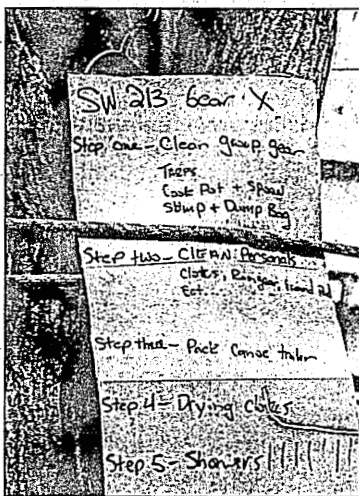 SW 213 Gear X
Step one - Clean group gear
Tarps
Cook Pot + Spoon
Stump + Dump Bag
Step two - CLEAN Personals...
Clothes, Rain gear,
Ect...
Step three - Pack Canoe
Step 4 - Drying Clothes
Step 5 - Showers